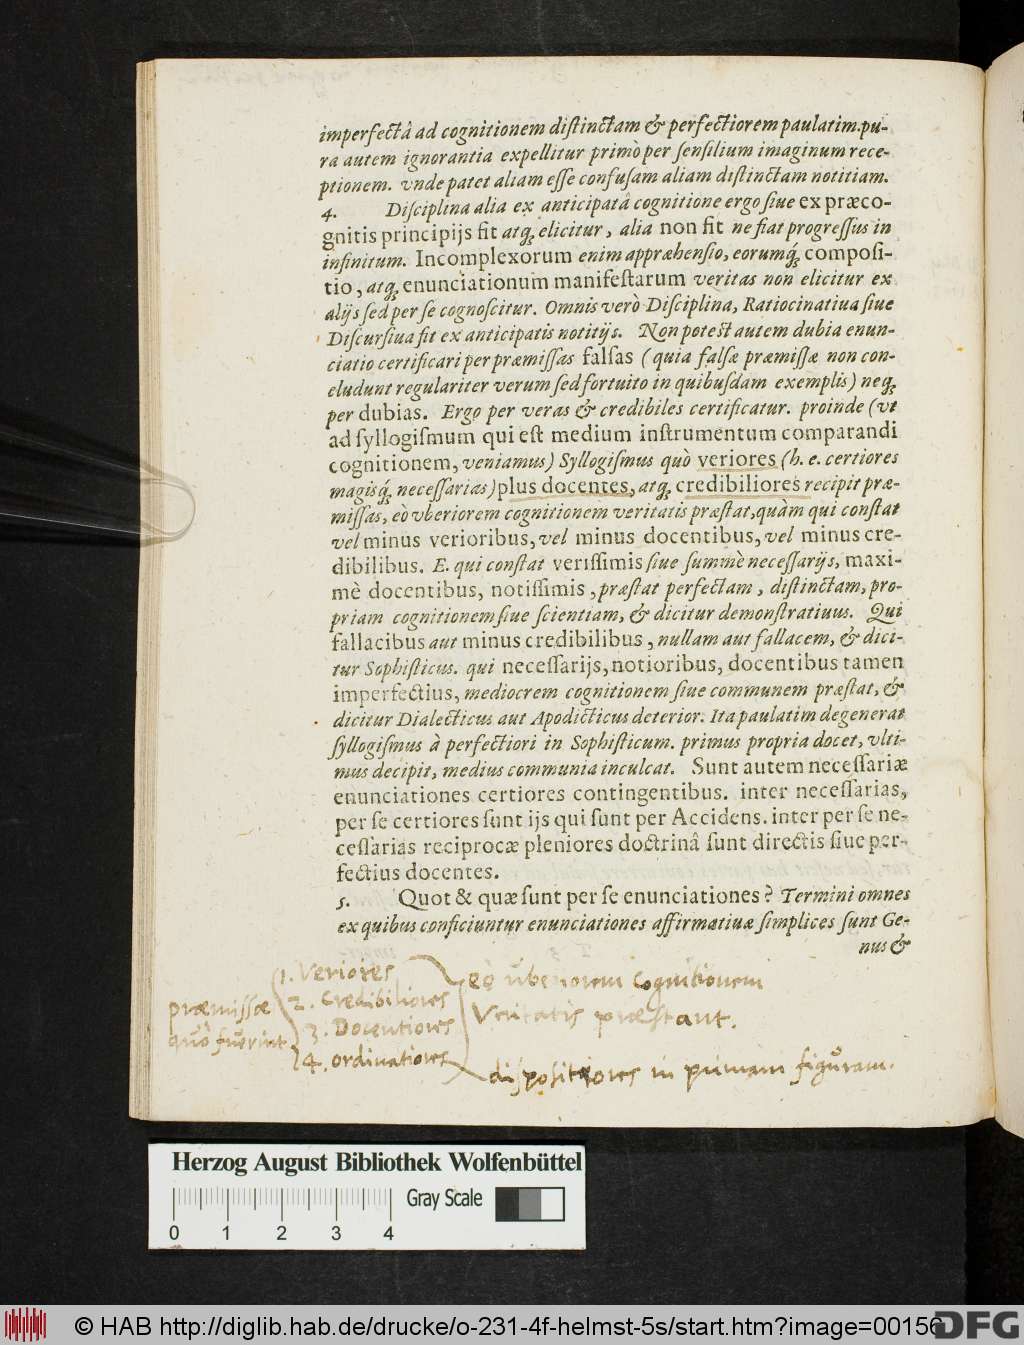 imperfectâ ad cognitionem distinctam & perfectiorem paulatim. pu-
ra autem ignorantia expellitur primò per sensilium imaginum rece-
ptionem. vnde patet aliam esse confusam aliam distinctam notitiam.
4. Disciplina alia ex anticipatâ cognitione ergo siue ex præco-
gnitis principijs fit atq́; elicitur, alia non fit ne fiat progressus in
infinitum. Incomplexorum enim appræhensio, eorumq́; composi-
tio, atq́; enunciationum manifestarum veritas non elicitur ex
alijs sed per se cognoscitur. Omnis verò Disciplina, Ratiocinatiua siue
Discursiua fit ex anticipatis notitijs. Non potest autem dubia enun-
ciatio certificari per præmissas falsas (quia falsæ præmissæ non con-
eludunt regulariter verum sed fortuito in quibusdam exemplis) neq;
per dubias. Ergo per veras & credibiles certificatur. proinde (vt
ad syllogismum qui est medium instrumentum comparandi
cognitionem, veniamus) Syllogismus quò veriores (h. e. certiores
magisq́; necessarias) plus docentes, atq; credibiliores recipit præ-
missas, eò vberiorem cognitionem veritatis præstat, quàm qui constat
vel minus verioribus, vel minus docentibus, vel minus cre-
dibilibus. E. qui constat verissimis siue summè necessarijs, maxi-
mè docentibus, notissimis, præstat perfectam, distinctam, pro-
priam cognitionem siue scientiam, & dicitur demonstratiuus. Qui
fallacibus aut minus credibilibus, nullam aut fallacem, & dici-
tur Sophisticus. qui necessarijs, notioribus, docentibus tamen
imperfectius, mediocrem cognitionem siue communem præstat, &
dicitur Dialecticus aut Apodicticus deterior. Ita paulatim degenerat
syllogismus à perfectiori in Sophisticum. primus propria docet, vlti-
mus decipit, medius communia inculcat. Sunt autem necessariæ
enunciationes certiores contingentibus. inter necessarias,
per se certiores sunt ijs qui sunt per Accidens. inter per se ne-
cessarias reciprocæ pleniores doctrinâ sunt directis siue per-
fectius docentes.
5. Quot & quæ sunt per se enunciationes? Termini omnes
ex quibus conficiuntur enunciationes affirmatiuæ simplices sunt Ge-
nus &
præmissæ
quò fuerint
1. Veriores
2. Credibiliores
3. Docentiores
4. ordinatiores
eò uberiorem cognitionem
Veritatis præstant.
dispositiores in primam figuram.
Herzog August Bibliothek Wolfenbüttel
Gray Scale
0 1 2 3 4
© HAB http://diglib.hab.de/drucke/o-231-4f-helmst-5s/start.htm?image=00156
DFG